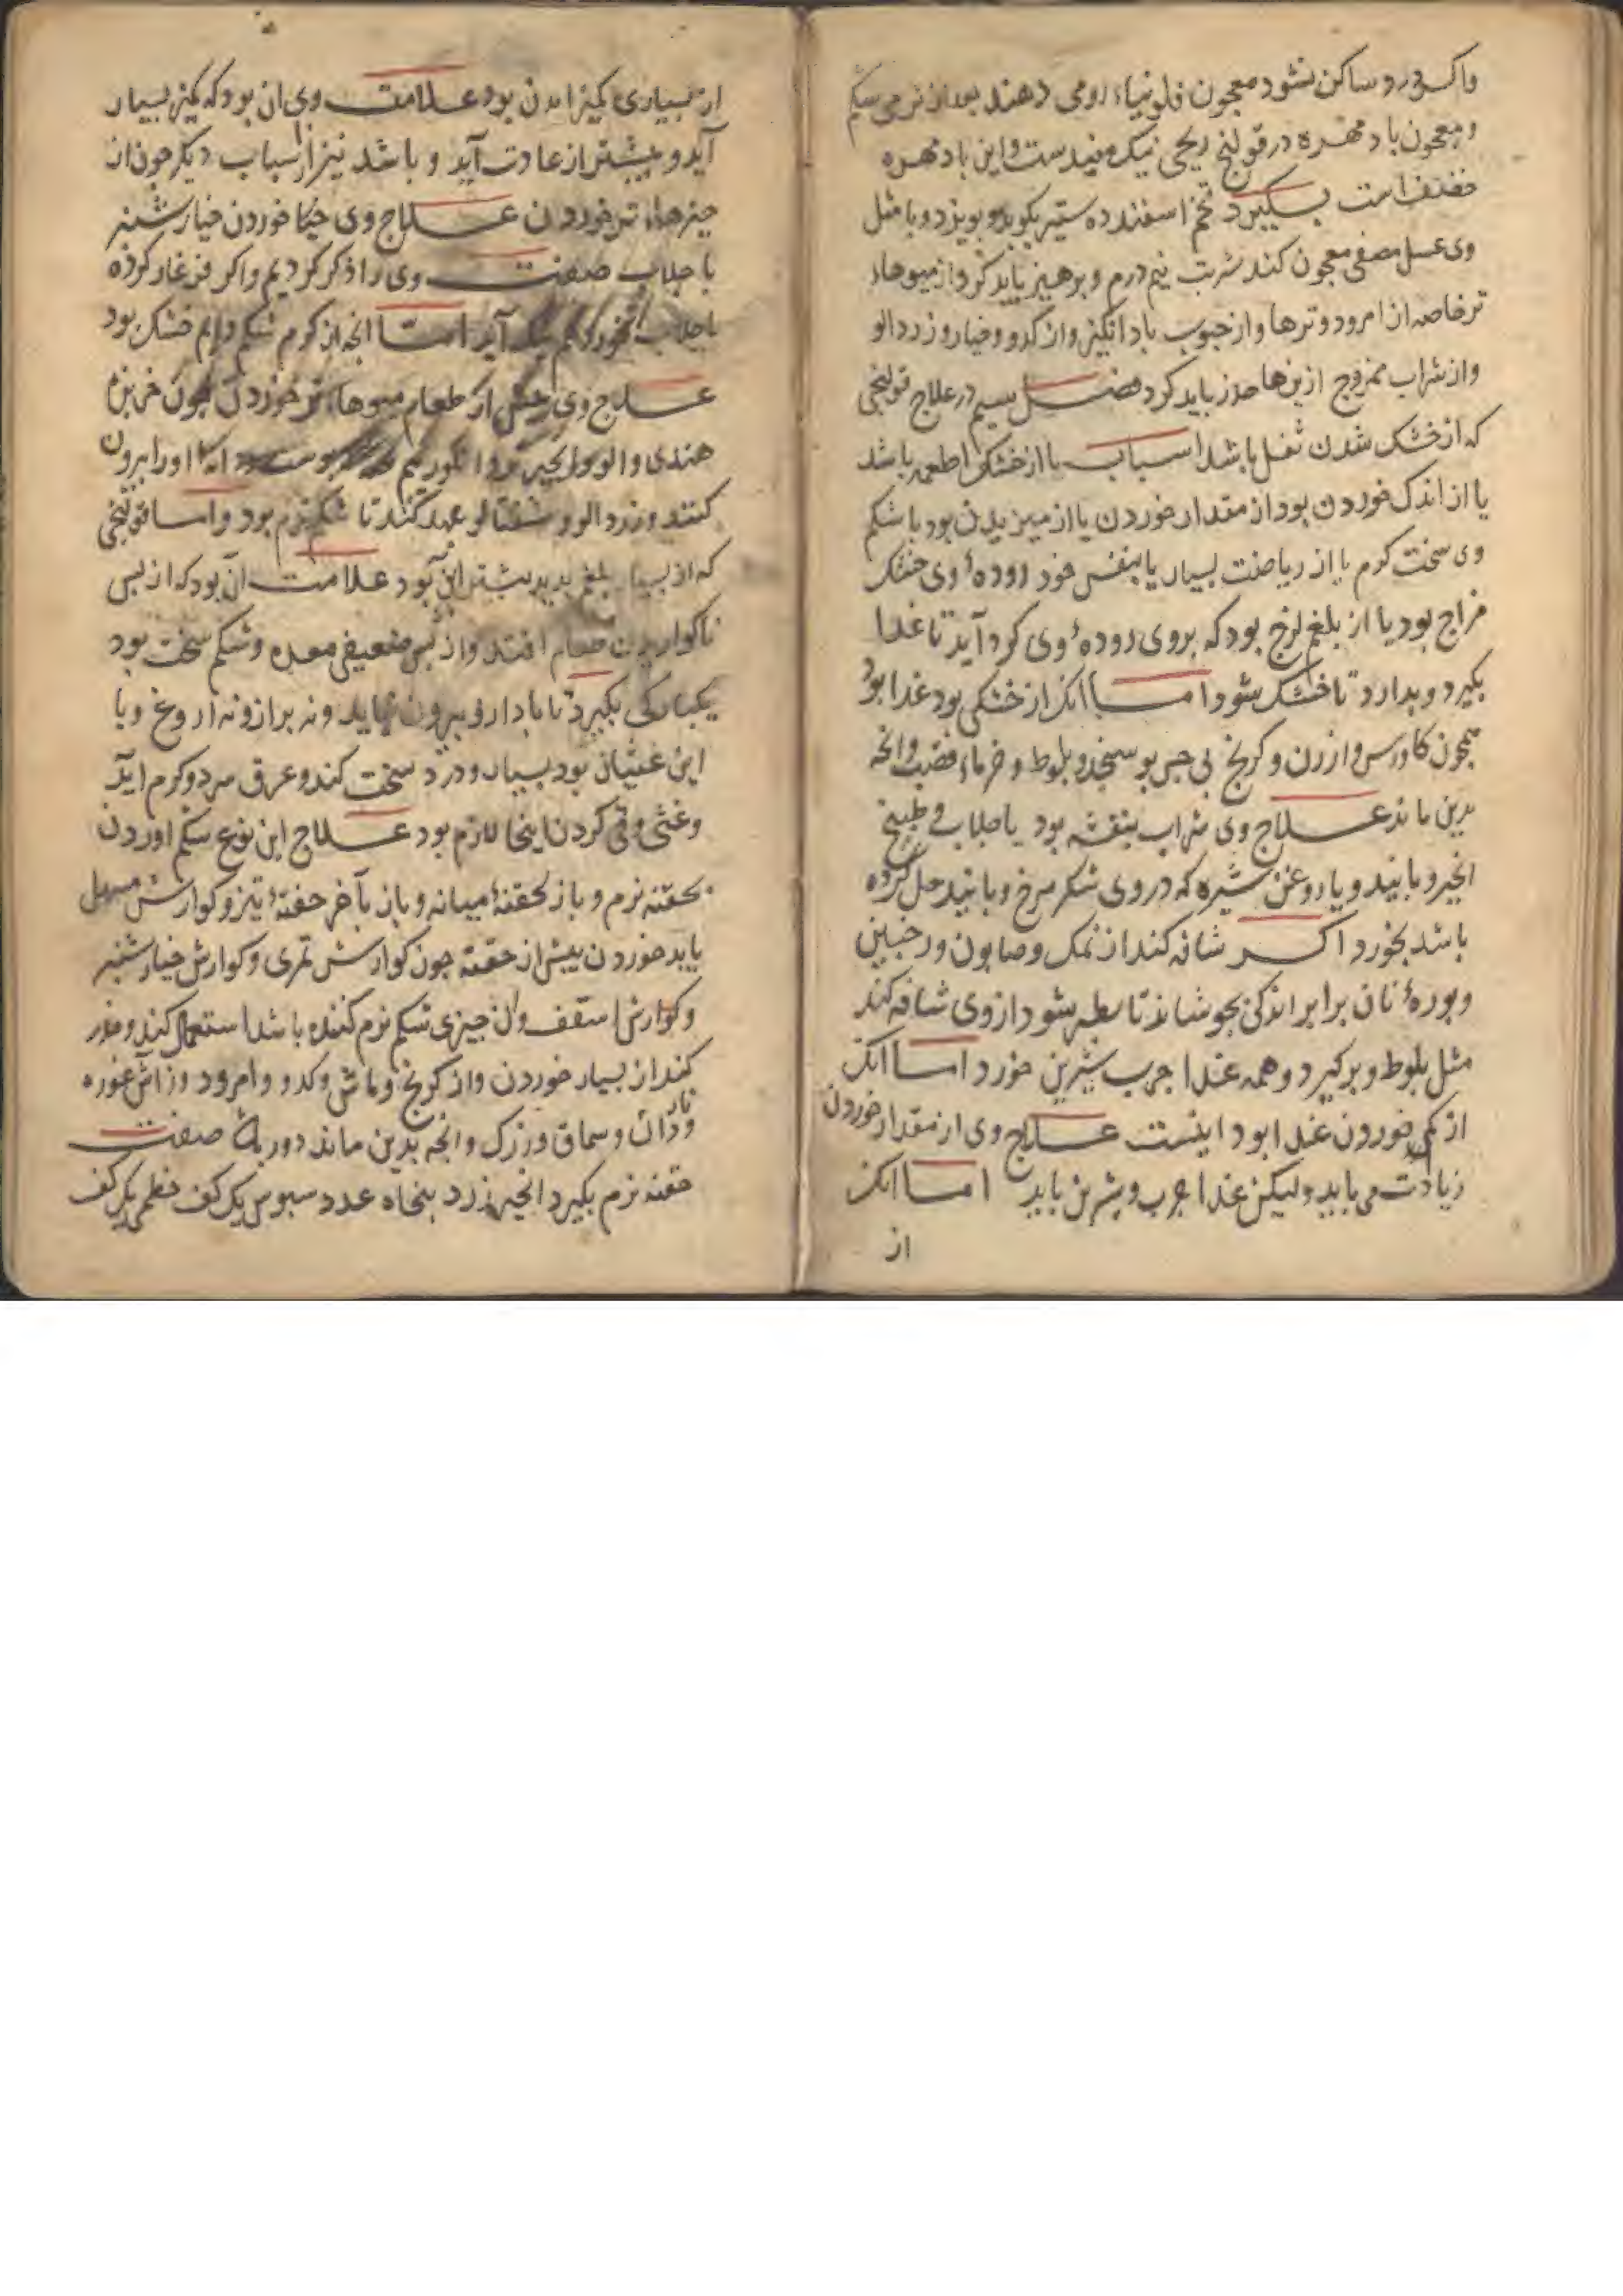 واکر درد ساکن نشود معجون فلونیاء رومی دهند بعد از نرمی شکم
و معجون باد مهره در قولنج ریحی نیک مفیدست و این باد مهره
است بگیرد تخم اسفند ده ستیر بکوبد و ببیزد و با مثل
وی عسل مصفی معجون کند شربت نیم درم و برهیز باید کرد از میوهاء
تر خاصه از امرود و ترها و از حبوب باد انکیز و از کدو و خیار و زردالو
و از شراب ممزوج ازینها حذر باید کرد فصل سیم در علاج قولنجی
که از خشک شدن ثفل باشد اسباب یا از خشکی اطعمه باشد
یا از اندک خوردن بود از مقدار خوردن یا از میزیدن بود یا شکم
وی سخت کرم یا از ریاضت بسیار یا بنفس خود رودهٔ وی خشک
مزاج بود یا از بلغم لزج بود که بروی رودهٔ وی کرد آید تا غذا
بکیرد و بدارد تا خشک شود اما انک از خشکی بود غذا بود
همچون کاورس و ارزن و کرنج بی چربو سنجد و بلوط و خرماء قصب و انچه
بدین ماند علاج وی شراب بنفشه بود یا جلاب و طبیخ
انجیر و بانید و یا روغن شیره که در وی شکر سرخ و بانید حل کرده
باشد بخورد اکر شافه کند از نمک و صابون و
و بورهٔ نان برابر اندکی بجوشاند تا سطبر شود از وی شافه کند
مثل بلوط و برکیرد و همه غذا جرب شیرین خورد اما انک
از کمی خوردن غذا بود اینست علاج وی از مقدار خوردن
زیادت می باید ولیکن غذا جرب و شیرین باید اما انک
از
از بسیاری کمیز امدن بود علامت وی ان بود که کمیز بسیار
آید و بیشتر از عادت آید و باشد نیز از اسباب دیکر جون از
جیزهاء تر خوردن علاج وی خوردن خیار شنبر
با جلاب صفت وی را ذکر کردیم و اکر فرغار کرده
با جلاب بخورد هم نیک آید اما انچه از کرم شکم دایم خشک بود
علاج وی بیش از طعام میوهاء تر خوردن همچون خربزه
هندی و الو و انجیر و انکور او را بیرون
کنند و زردالو و شفتالو عهد کنند تا شکم نرم بود و اما قولنجی
که از بسیار بلغم بدید بیشتر این بود علامت آن بود که از بس
ناکواریدن طعام افتد و از بس ضعیفی معده و شکم سخت بود
یکبارکی بکیرد تا باد ازو بیرون نیاید و نه براز و نه اروغ و با
این غثیان بود بسیار و درد سخت کند و عرق سرد و کرم آید
و غثی و قی کردن اینجا لازم بود علاج این نوع شکم اوردن
بحقنه نرم و باز بحقنهٔ میانه و باز بآخر حقنهٔ تیز و کوارش مسهل
باید خوردن بیش از حقنه جون کوارش تمری و کوارش خیار شنبر
و کوارش اسقف و ان جیزی شکم نرم کننده باشد استعمال کند و حذر
کند از بسیار خوردن و از کرنج و ماش و کدو و امرود و از آش غوره
و ناردان و سماق و زرک و انچه بدین ماند دور به صفت
حقنه نرم بکیرد انجیر زرد بنجاه عدد سبوس یک کف خطمی یک کف